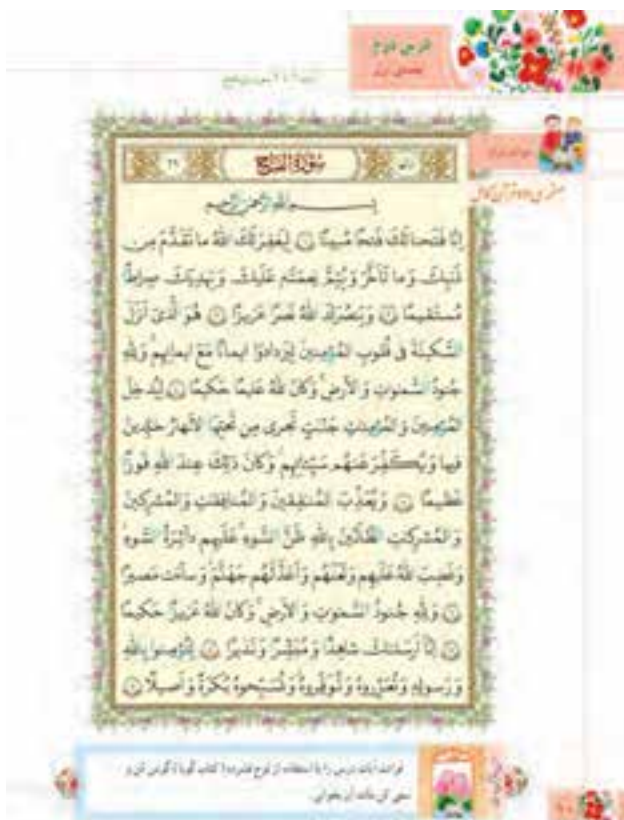 درس دوم
سُورَةُ الفَتح
بِسمِ اللهِ الرَّحمٰنِ الرَّحيمِ
اِنّا فَتَحنا لَكَ فَتحًا مُبينًا ۱ لِيَغفِرَ لَكَ اللهُ ما تَقَدَّمَ مِن
ذَنبِكَ وَ ما تَاَخَّرَ وَ يُتِمَّ نِعمَتَهُ عَلَيكَ وَ يَهدِيَكَ صِراطًا
مُستَقيمًا ۲ وَ يَنصُرَكَ اللهُ نَصرًا عَزيزًا ۳ هُوَ الَّذى اَنزَلَ
السَّكينَةَ فى قُلوبِ المُؤمِنينَ لِيَزدادوا ايمانًا مَعَ ايمانِهِم وَ لِلّهِ
جُنودُ السَّمٰوٰتِ وَ الاَرضِ وَ كانَ اللهُ عَليمًا حَكيمًا ۴ لِيُدخِلَ
المُؤمِنينَ وَ المُؤمِنٰتِ جَنّٰتٍ تَجرى مِن تَحتِهَا الاَنهارُ خٰلِدينَ
فيها وَ يُكَفِّرَ عَنهُم سَيِّئاتِهِم وَ كانَ ذٰلِكَ عِندَ اللهِ فَوزًا
عَظيمًا ۵ وَ يُعَذِّبَ المُنٰفِقينَ وَ المُنافِقٰتِ وَ المُشرِكينَ
وَ المُشرِكٰتِ الظّانّينَ بِاللهِ ظَنَّ السَّوءِ عَلَيهِم دائِرَةُ السَّوءِ
وَ غَضِبَ اللهُ عَلَيهِم وَ لَعَنَهُم وَ اَعَدَّ لَهُم جَهَنَّمَ وَ ساءَت مَصيرًا
۶ وَ لِلّهِ جُنودُ السَّمٰوٰتِ وَ الاَرضِ وَ كانَ اللهُ عَزيزًا حَكيمًا
۷ اِنّا اَرسَلناكَ شاهِدًا وَ مُبَشِّرًا وَ نَذيرًا ۸ لِتُؤمِنوا بِاللهِ
وَ رَسولِهِ وَ تُعَزِّروهُ وَ تُوَقِّروهُ وَ تُسَبِّحوهُ بُكرَةً وَ اَصيلًا ۹
قرائت آیات درس را با استفاده از لوح فشرده یا کتاب گویا گوش کن و
سعی کن مانند آن بخوانی.